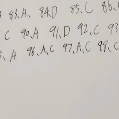 83.A. 84.D 85.C 86.
C 90.A 91.D 92.C 93
A 96.A.C 97.A.C 98.C